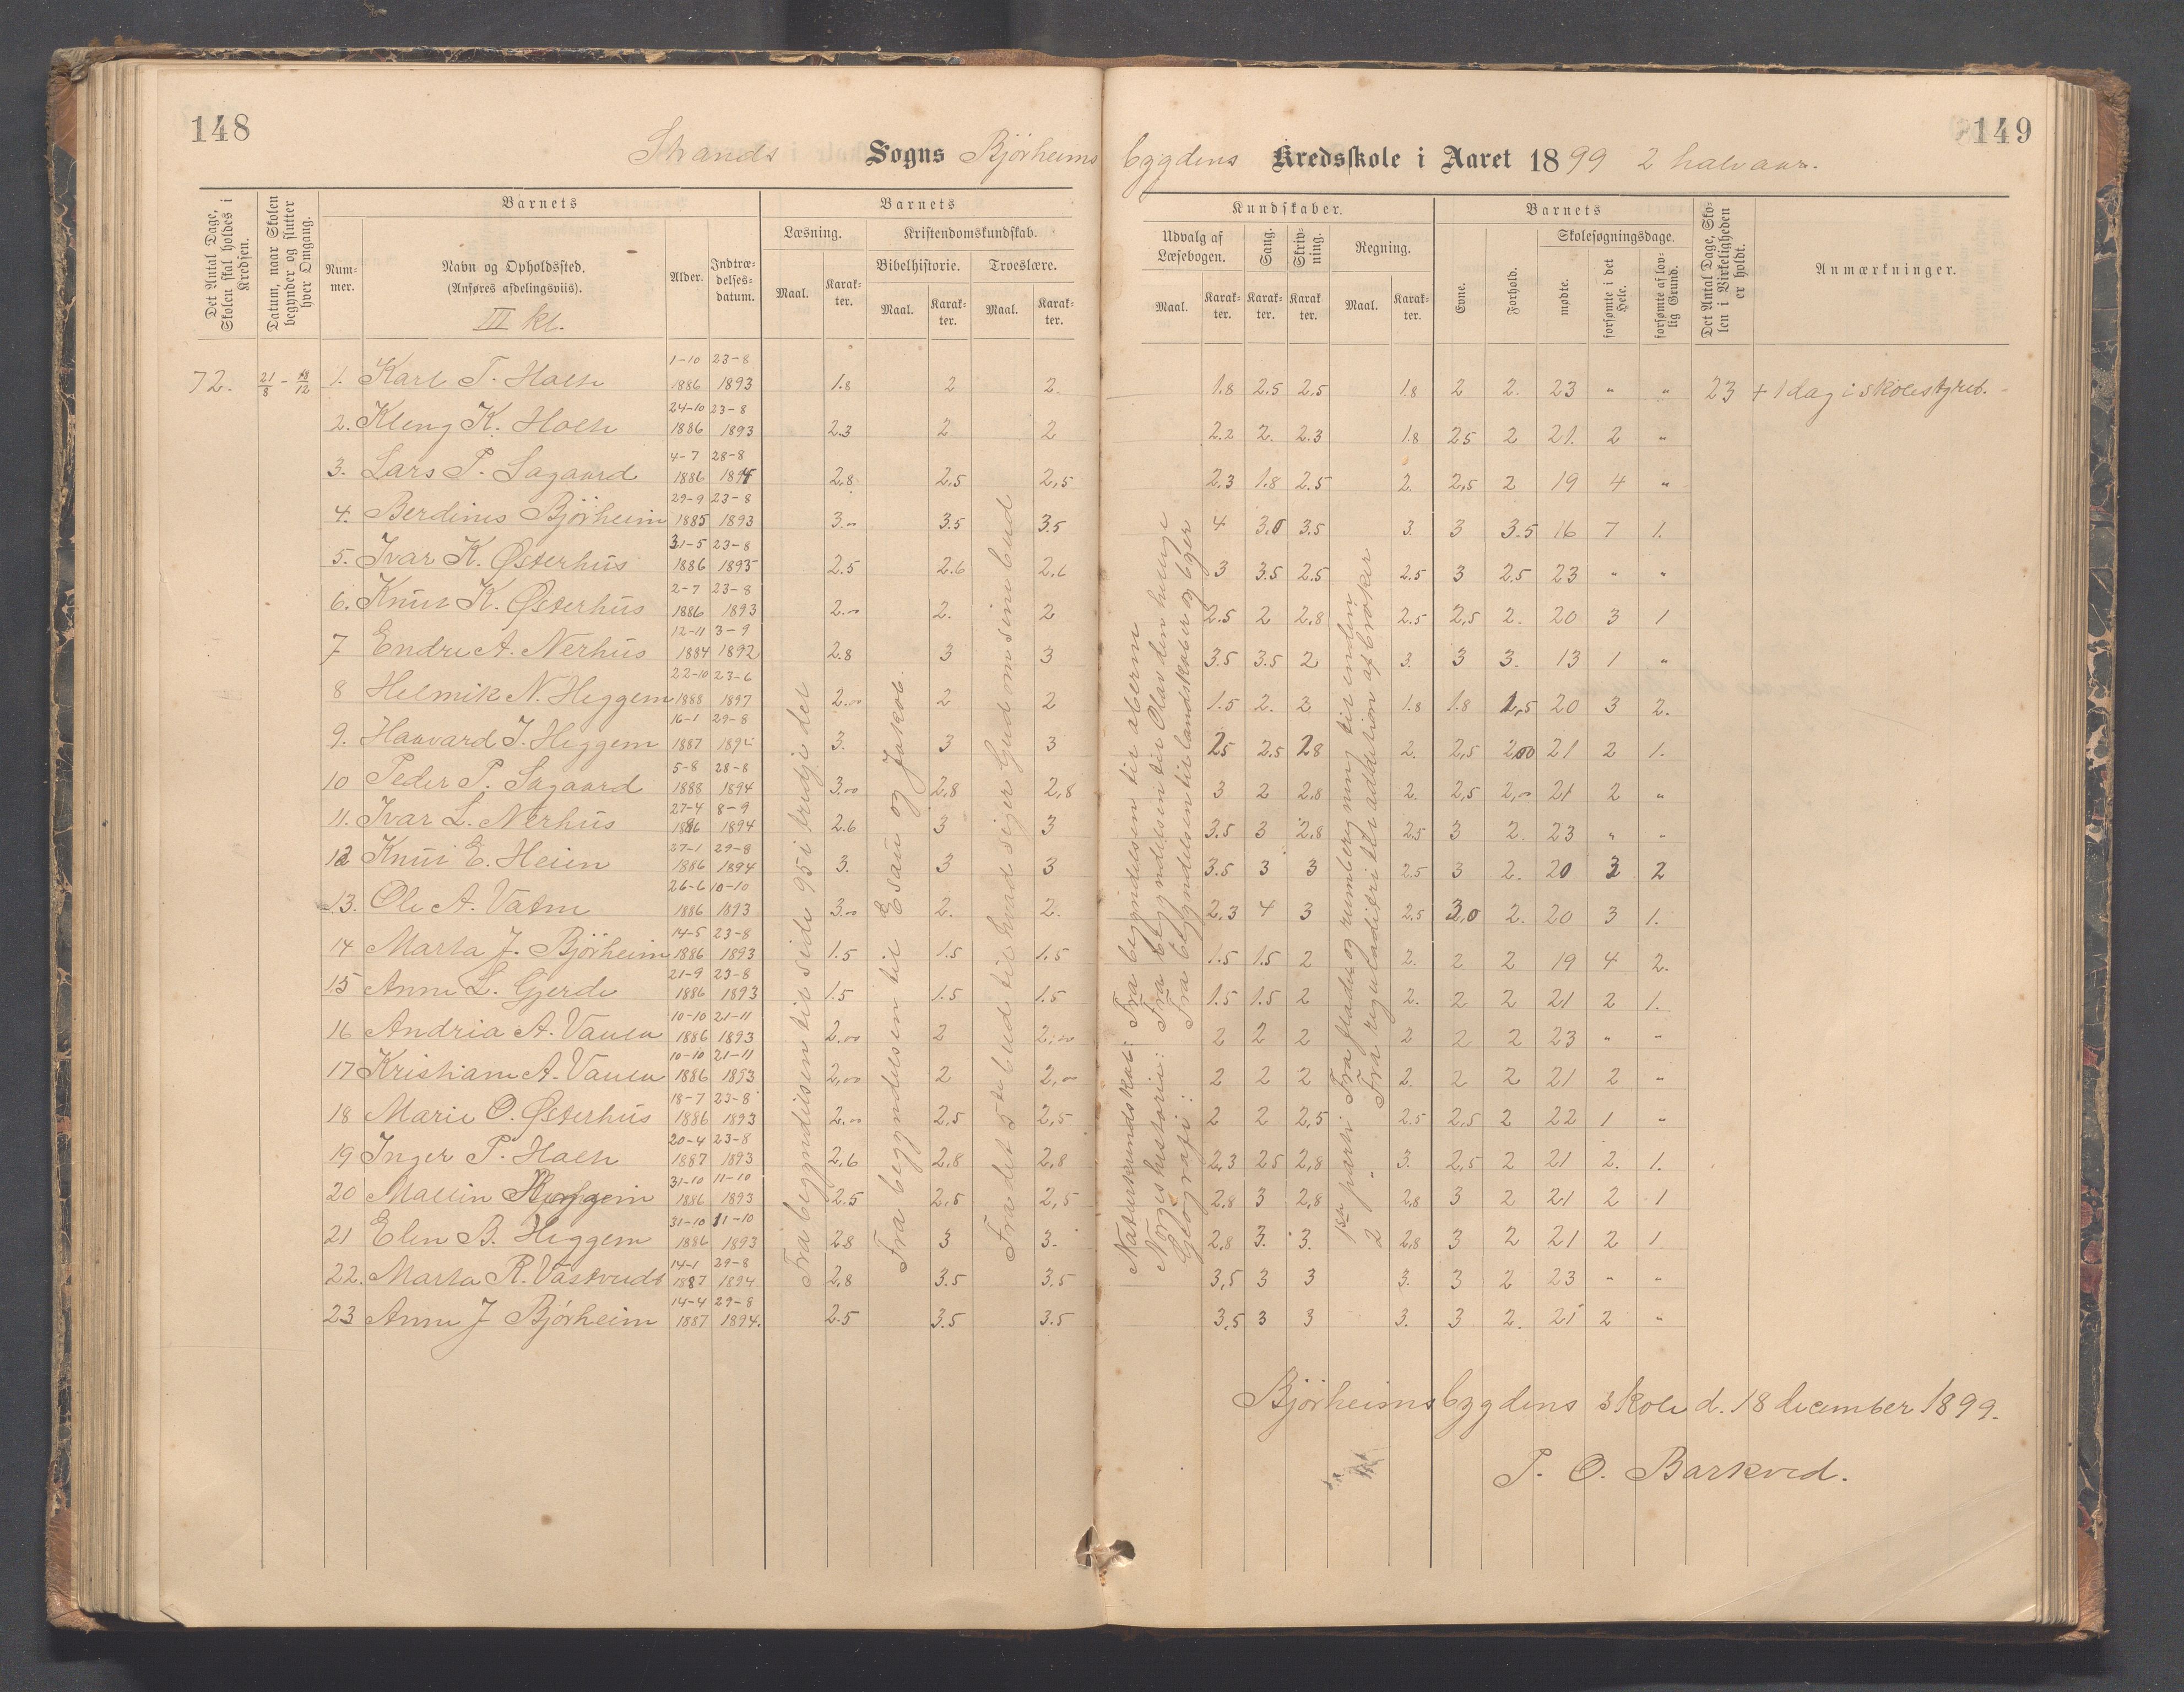 148
149
Strands Sogns Bjørheims bygdens Kredsskole i Aaret 1899 2 halvaar.
Det Antal Dage, Skolen skal holdes i Kredsen.
Datum, naar Skolen begynder og slutter hver Omgang.
Barnets
Nummer.
Navn og Opholdssted.
(Anføres afdelingsviis).
III kl.
Alder.
Indtrædelsesdatum.
Barnets
Læsning.
Maal.
Karakter.
Kristendomskundskab.
Bibelhistorie.
Maal.
Karakter.
Troeslære.
Maal.
Karakter.
Kundskaber.
Udvalg af Læsebogen.
Maal.
Karakter.
Sang.
Karakter.
Skrivning.
Karakter.
Regning.
Maal.
Karakter.
Barnets
Evne.
Forhold.
Skolesøgningsdage.
mødte.
forsømte i det Hele.
forsømte af lovlig Grund.
Det Antal Dage, Skolen i Virkeligheden er holdt.
Anmærkninger.
72. 21/8 - 18/12 1. Karl T. Holth 1-10 1886 23-8 1893 1.8 2 2. 1.8 2.5 2,5 1.8 2 2. 23 " " 23 + 1 dag i skolestyret.
2. Kleng K. Holth 24-10 1886 23-8 1893 2.3 2 2 2.2 2. 2.3 1.8 25 2 21. 2 "
3. Lars P. Sagaard 4-7 1886 28-8 1894 2,8 2,5 2,5 2.3 1.8 2.5 2. 2,5 2 19 4 "
4. Berdines Bjørheim 29-9 1885 23-8 1893 3.00 3.5 3.5 4 3.0 3.5 3. 3 3.5 16 7 1.
5. Ivar K. Østerhus 31-5 1886 23-8 1893 2.5 2.6 2,6 3 3.5 2.5 2.5 3 2.5 23 " "
6. Knut K. Østerhus 2-7 1886 23-8 1893 2.00 2. 2 2.5 2 2,8 2.5 2,5 2. 20 3 1
7 Endre A. Nerhus 12-11 1884 3-9 1892 2.8 3 3 3.5 3.5 2 3. 3 3. 13 1 "
8 Helmik N. Heggem 22-10 1888 23-6 1897 2.00 2 2 1.5 2. 2 1.8 1.8 1,5 20 3 2.
9. Haavard J. Heggem 16-1 1887 29-8 1894 3. 3 3 25 2.5 28 2. 2,5 200 21 2 1.
10 Peder P. Sagaard 5-8 1888 28-8 1894 3.00 2,8 2,8 3 2 2.8 2. 2,5 2,00 21 2 "
11. Ivar L. Nerhus 27-4 1886 8-9 1894 2.6 3 3 3.5 3 2,8 2.5 3 2. 23 " "
12 Knut E. Heien 27-1 1886 29-8 1894 3. 3 3 3.5 3 3 2.5 3 2. 20 3 2
13. Ole A. Vatne 26-6 1886 10-10 1893 3.00 2. 2. 2,3 4 3 2.5 3,0 2. 20 3 1.
14 Marta J. Bjørheim 14-5 1886 23-8 1893 1.5 1.5 1.5 1.5 1.5 2 2. 2 2 19 4 2.
15 Anne L. Gjerde 21-9 1886 23-8 1893 1.5 1.5 1.5 1.5 1.5 2 2. 2 2 21 2 1.
16 Andria A. 10-10 1886 21-11 1893 2.00 2 2,00 2 2 2 2 2 2 23 " "
17 Kristiane A. 10-10 1886 21-11 1893 2,00 2 2,00 2 2 2 2. 2 2 21 2 "
18 Marie O. Østerhus 18-7 1886 23-8 1893 2.00 2,5 2,5 2 2 2,5 2.5 2,5 2 22 1 "
19 Inger P. Holth 20-4 1887 23-8 1893 2,6 2,8 2,8 2,3 25 2,8 3. 2,5 2 21 2. 1.
20 Mallin Heggem 31-10 1886 11-10 1893 2.5 2,5 2,5 2,8 3 2,8 2,8 3 2 21 2 1
21 Elen B. Heggem 31-10 1886 11-10 1893 28 3 3. 2,8 3. 3. 2,8 3 2 21 2 1
22. Marta R. 14-1 1887 29-8 1894 2,8 3.5 3.5 3,5 3 3 3. 3 2 23 " "
23 Anne J Bjørheim 14-4 1887 29-8 1894. 2.5 3.5 3.5 3,5 3 3 3. 3 2. 21 2 "
Fra begyndelsen til side 95 i tredje del
Fra begyndelsen til Esau og Jakob.
Fra det 5te bud til Hvad siger Gud om sine bud
Naturkundskab: Fra begyndelsen til aberne
Norgeshistorie: Fra begyndelsen til Olav den hellige
Geografi: Fra begyndelsen til landskaber og byer
1ste parti Fra flade og rumberegning til enden
2 " Fra reguladetri til addition af brøker
Bjørheimsbygdens skole d. 18 december 1899.
P. O. Barkved.